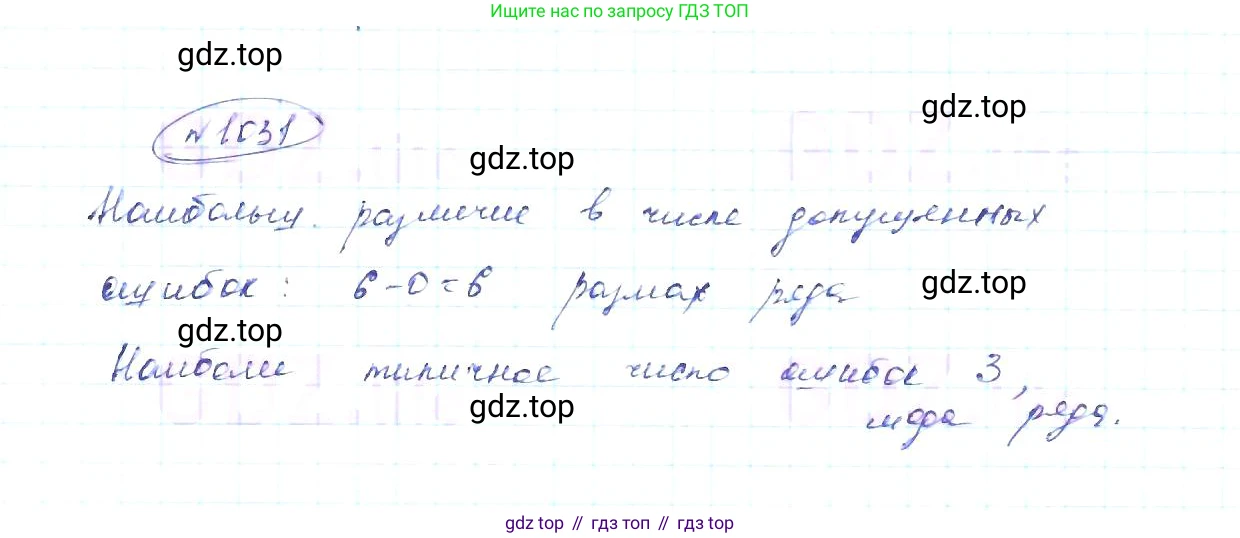 Ищите нас по запросу ГДЗ ТОП
gdz.top
gdz.top
№ 1031
gdz.top
Наибольш. различие в числе допущенных
ошибок: 6-0=6 размах ряда
gdz.top
gdz.top
Наиболее типичное число ошибок 3,
gdz.top
мода ряда.
gdz top // гдз топ // гдз top